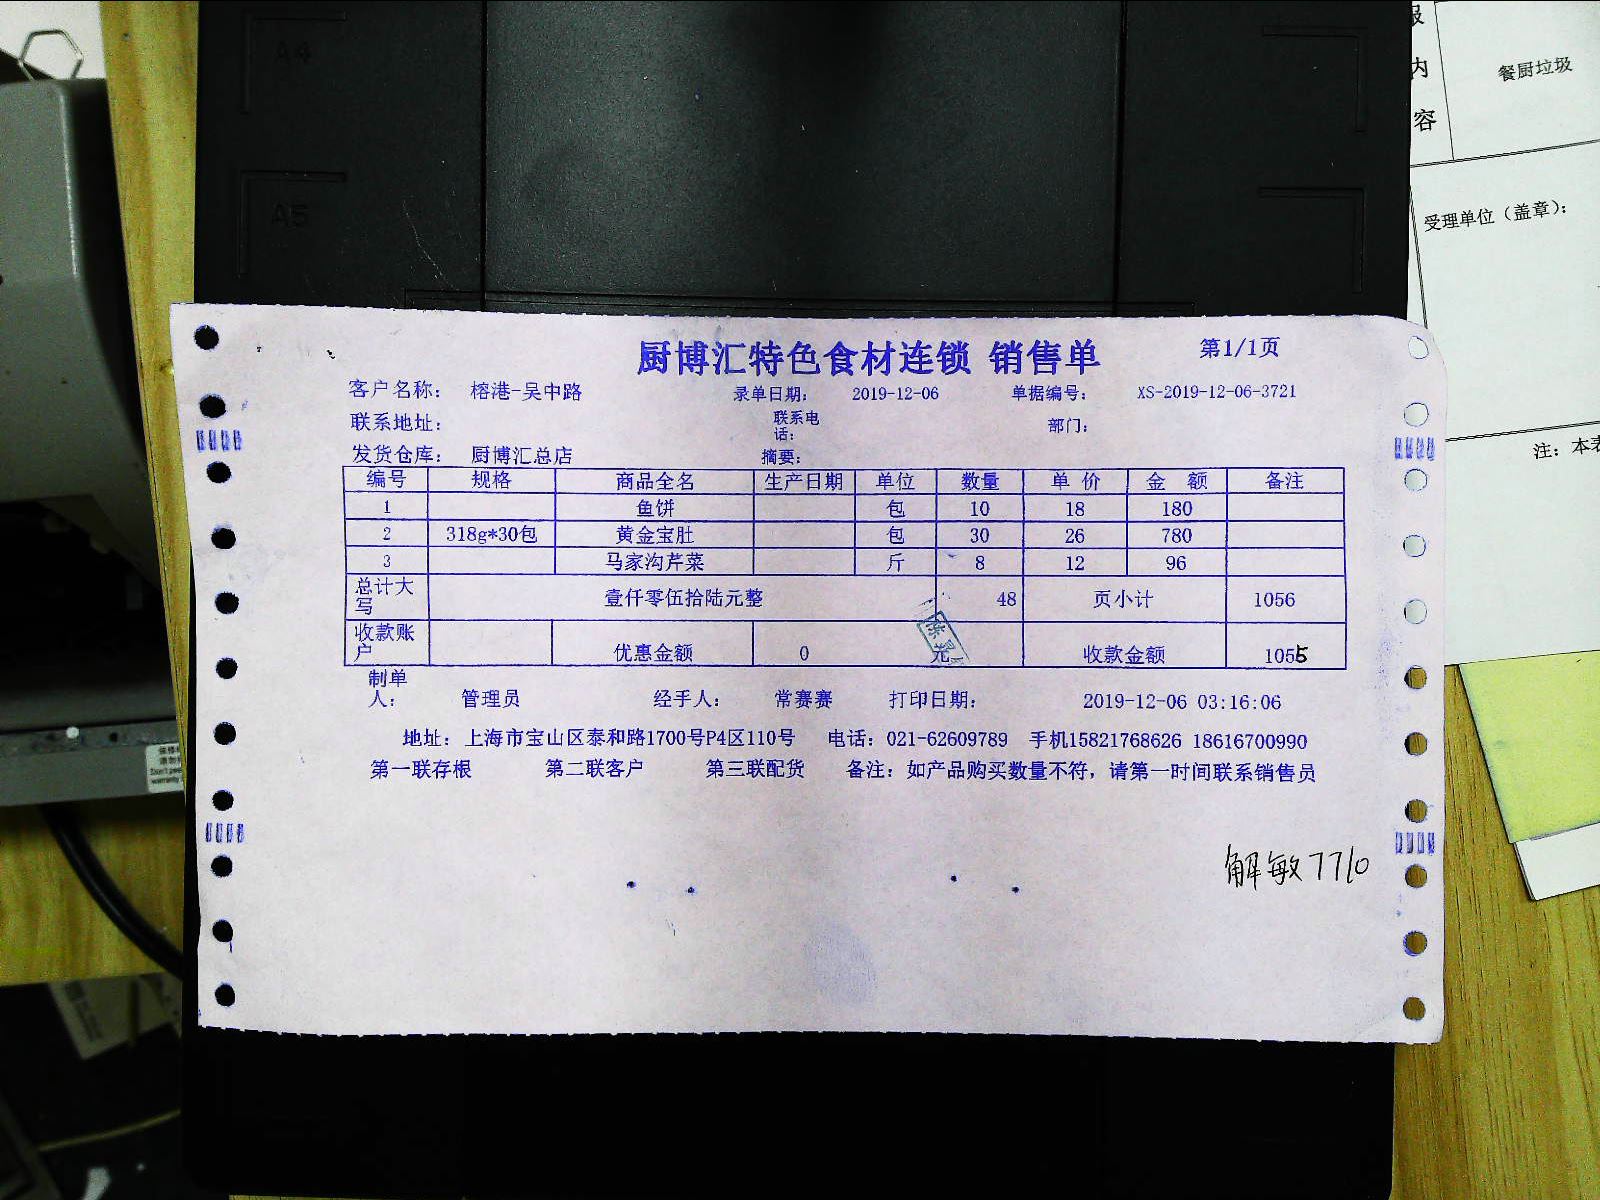 A4
A5
报
内
容
餐厨垃圾
受理单位（盖章）：
注：本表
厨博汇特色食材连锁 销售单 第1/1页
客户名称： 榕港-吴中路 录单日期： 2019-12-06 单据编号： XS-2019-12-06-3721
联系地址： 联系电话： 部门：
发货仓库： 厨博汇总店 摘要：
编号 规格 商品全名 生产日期 单位 数量 单 价 金 额 备注
1 鱼饼 包 10 18 180
2 318g*30包 黄金宝肚 包 30 26 780
3 马家沟芹菜 斤 8 12 96
总计大写 壹仟零伍拾陆元整 48 页小计 1056
收款账户 优惠金额 0 元 收款金额 1055
制单人： 管理员 经手人： 常赛赛 打印日期： 2019-12-06 03:16:06
地址：上海市宝山区泰和路1700号P4区110号 电话：021-62609789 手机15821768626 18616700990
第一联存根 第二联客户 第三联配货 备注：如产品购买数量不符，请第一时间联系销售员
解敏7710